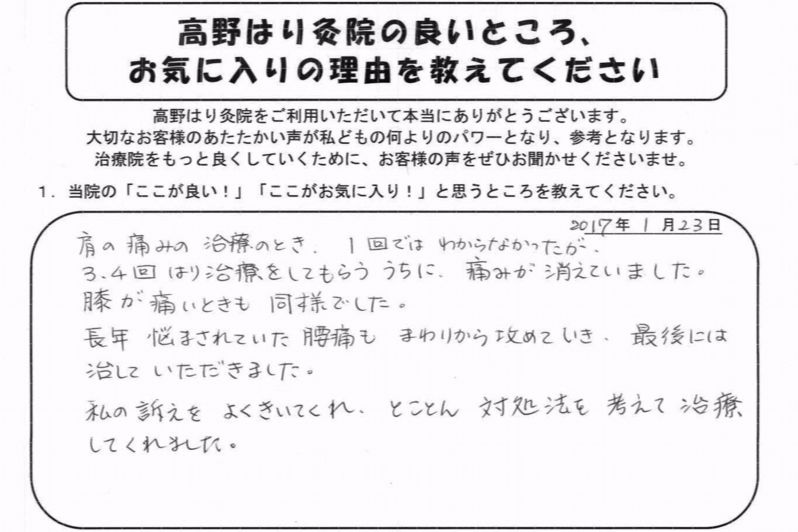 高野はり灸院の良いところ、
お気に入りの理由を教えてください
高野はり灸院をご利用いただいて本当にありがとうございます。
大切なお客様のあたたかい声が私どもの何よりのパワーとなり、参考となります。
治療院をもっと良くしていくために、お客様の声をぜひお聞かせくださいませ。
1．当院の「ここが良い！」「ここがお気に入り！」と思うところを教えてください。
2017年1月23日
肩の痛みの治療のとき、1回ではわからなかったが、
3、4回はり治療をしてもらううちに、痛みが消えていました。
膝が痛いときも同様でした。
長年悩まされていた腰痛もまわりから攻めていき、最後には
治していただきました。
私の訴えをよくきいてくれ、とことん対処法を考えて治療
してくれました。